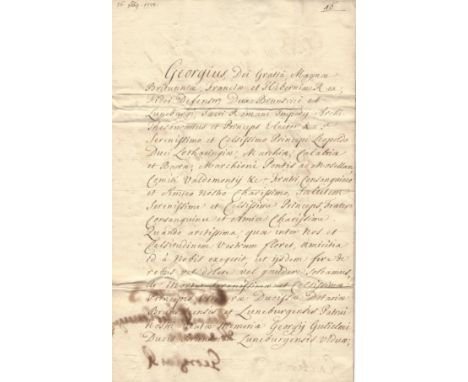 Georgius, Dei Gratiâ, Magnæ
Britanniæ, Franciæ et Hiberniæ Rex,
Fidei Defensor, Dux Brunsvici et
Luneburgi, Sacri Romani Imperij Archi
Thesaurarius et Princeps Elector &c.
Serenissimo et Celsissimo Principi Leopoldo
Duci Lotharingiæ, Marchiæ, Calabriæ
et Barri, Marchioni Pontis ad Mosellam
Comiti Valdemontij &c. Fratri Consanguineo
et Amico Nostro Charissimo, Salutem
Serenissime et Celsissime Princeps, Frater
Consanguinee et Amice Charissime.
Quando arctissima, quæ inter Nos et
Celsitudinem Vestram floret, amicitia
id à Nobis exegerit, ut ijsdem fere
rebus vel dolere vel gaudere soleamus,
de Morte Serenissimæ et Celsissimæ
Principis Ducissæ Dotariæ
Brunsvicensis et Luneburgensis Patrui
Nostri Memoriæ Georgij Gulielmi
Ducis Luneburgensis Viduæ,